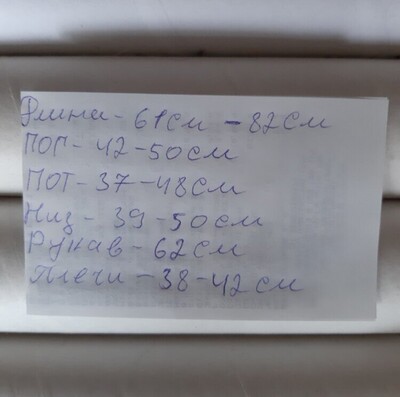 Длина - 61см - 82см
ПОГ - 42 - 50см
ПОТ - 37 - 48см
Низ - 39 - 50см
Рукав - 62см
Плечи - 38 - 42см